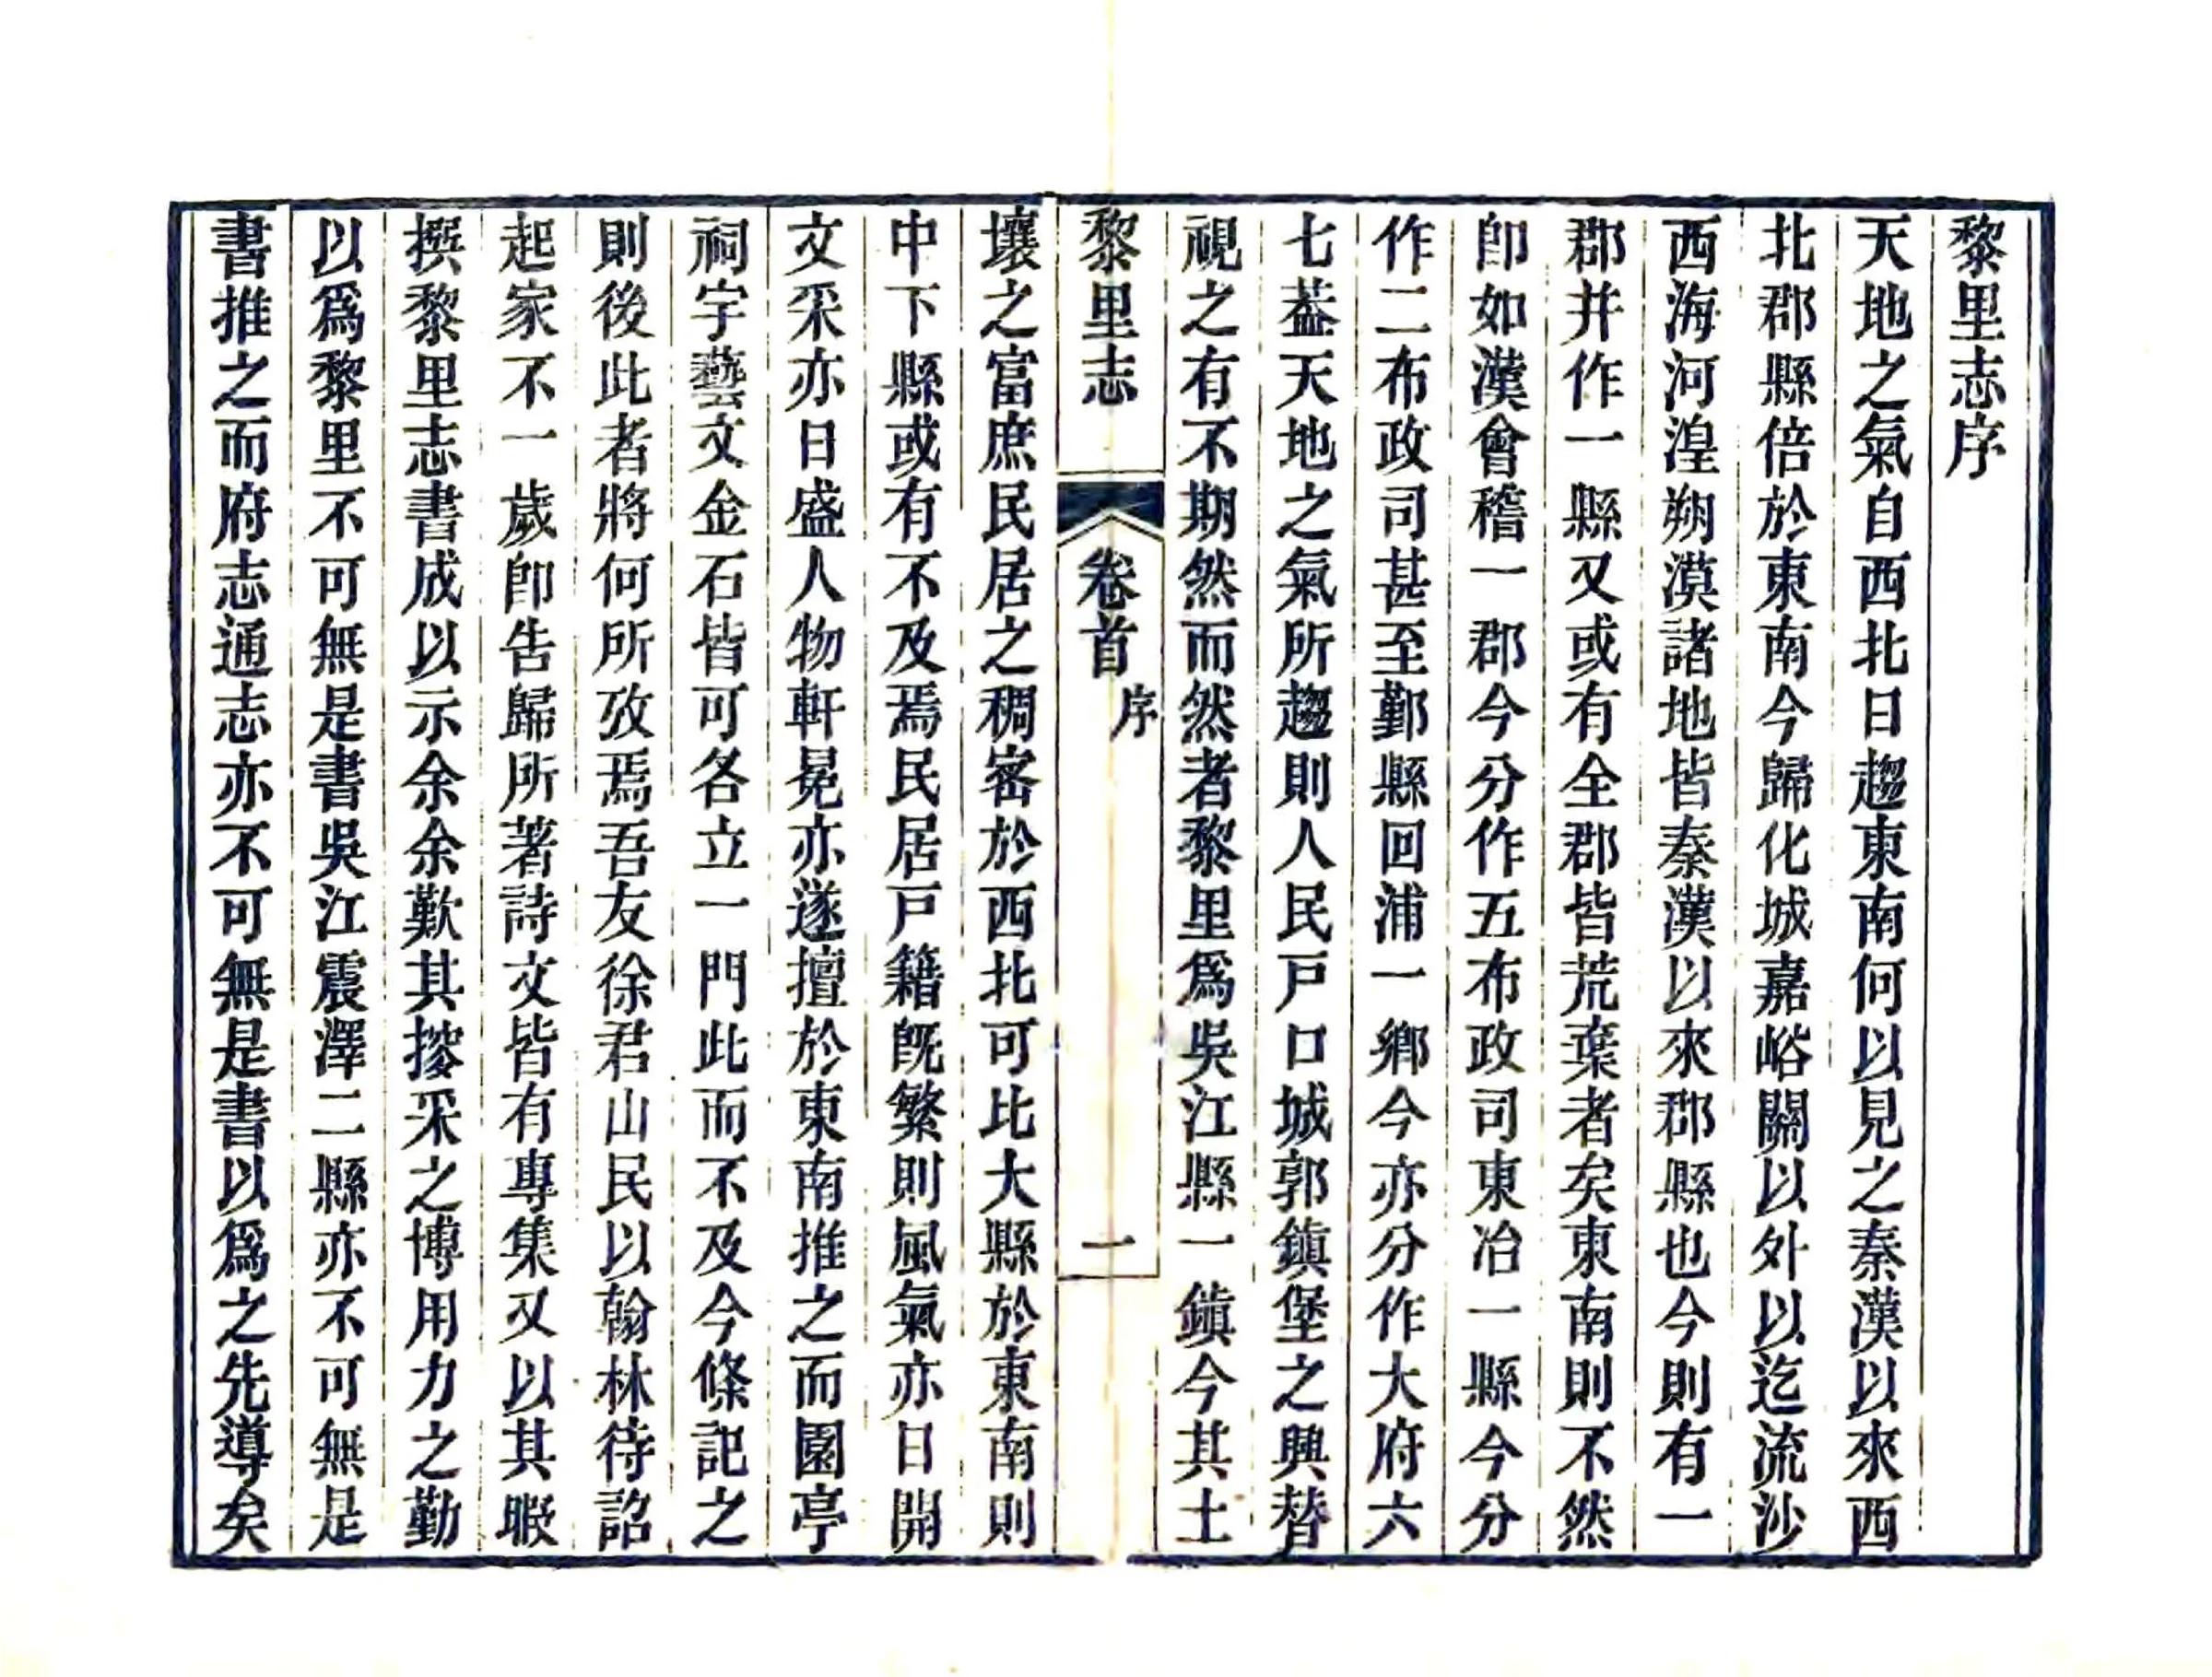 黎里志序
天地之氣自西北日趨東南何以見之秦漢以來西
北郡縣倍於東南今歸化城嘉峪關以外以迄流沙
西海河湟朔漠諸地皆秦漢以來郡縣也今則有一
郡并作一縣又或有全郡皆荒棄者矣東南則不然
卽如漢會稽一郡今分作五布政司東冶一縣今分
作二布政司甚至鄞縣回浦一鄉今亦分作大府六
七葢天地之氣所趨則人民戸口城郭鎭堡之興替
視之有不期然而然者黎里爲吳江縣一鎭今其土
黎里志
卷首
序
一
壤之富庶民居之稠密於西北可比大縣於東南則
中下縣或有不及焉民居戸籍旣繁則風氣亦日開
文采亦日盛人物軒冕亦遂擅於東南推之而園亭
祠宇藝文金石皆可各立一門此而不及今條記之
則後此者將何所攷焉吾友徐君山民以翰林待詔
起家不一歲卽告歸所著詩文皆有專集又以其暇
撰黎里志書成以示余余歎其搜采之博用力之勤
以爲黎里不可無是書吳江震澤二縣亦不可無是
書推之而府志通志亦不可無是書以爲之先導矣